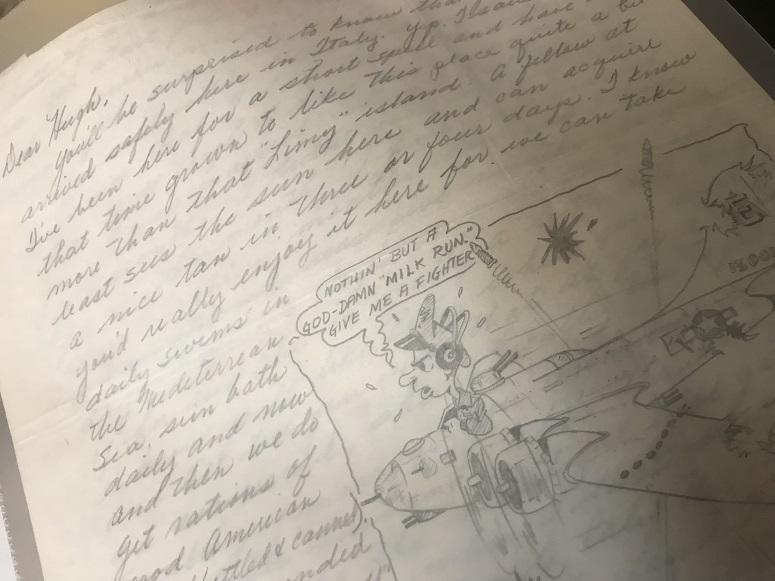 Dear Hugh,
You'll be surprised to know tha
arrived safely here in Italy. yp.
I've been here for a short spell and have
that time grown to like this place quite a bit
more than that "Limy" island. A fellow at
least sees the sun here and can acquire
a nice tan in three or four days. I know
you'd really enjoy it here for we can take
daily swims in
the Mediterrean
Sea, sun bath
daily and now
and then we do
get rations of
good American
ttled & canned)
nded
NOTHIN' BUT A
GOD-DAMN "MILK RUN."
GIVE ME A FIGHTER